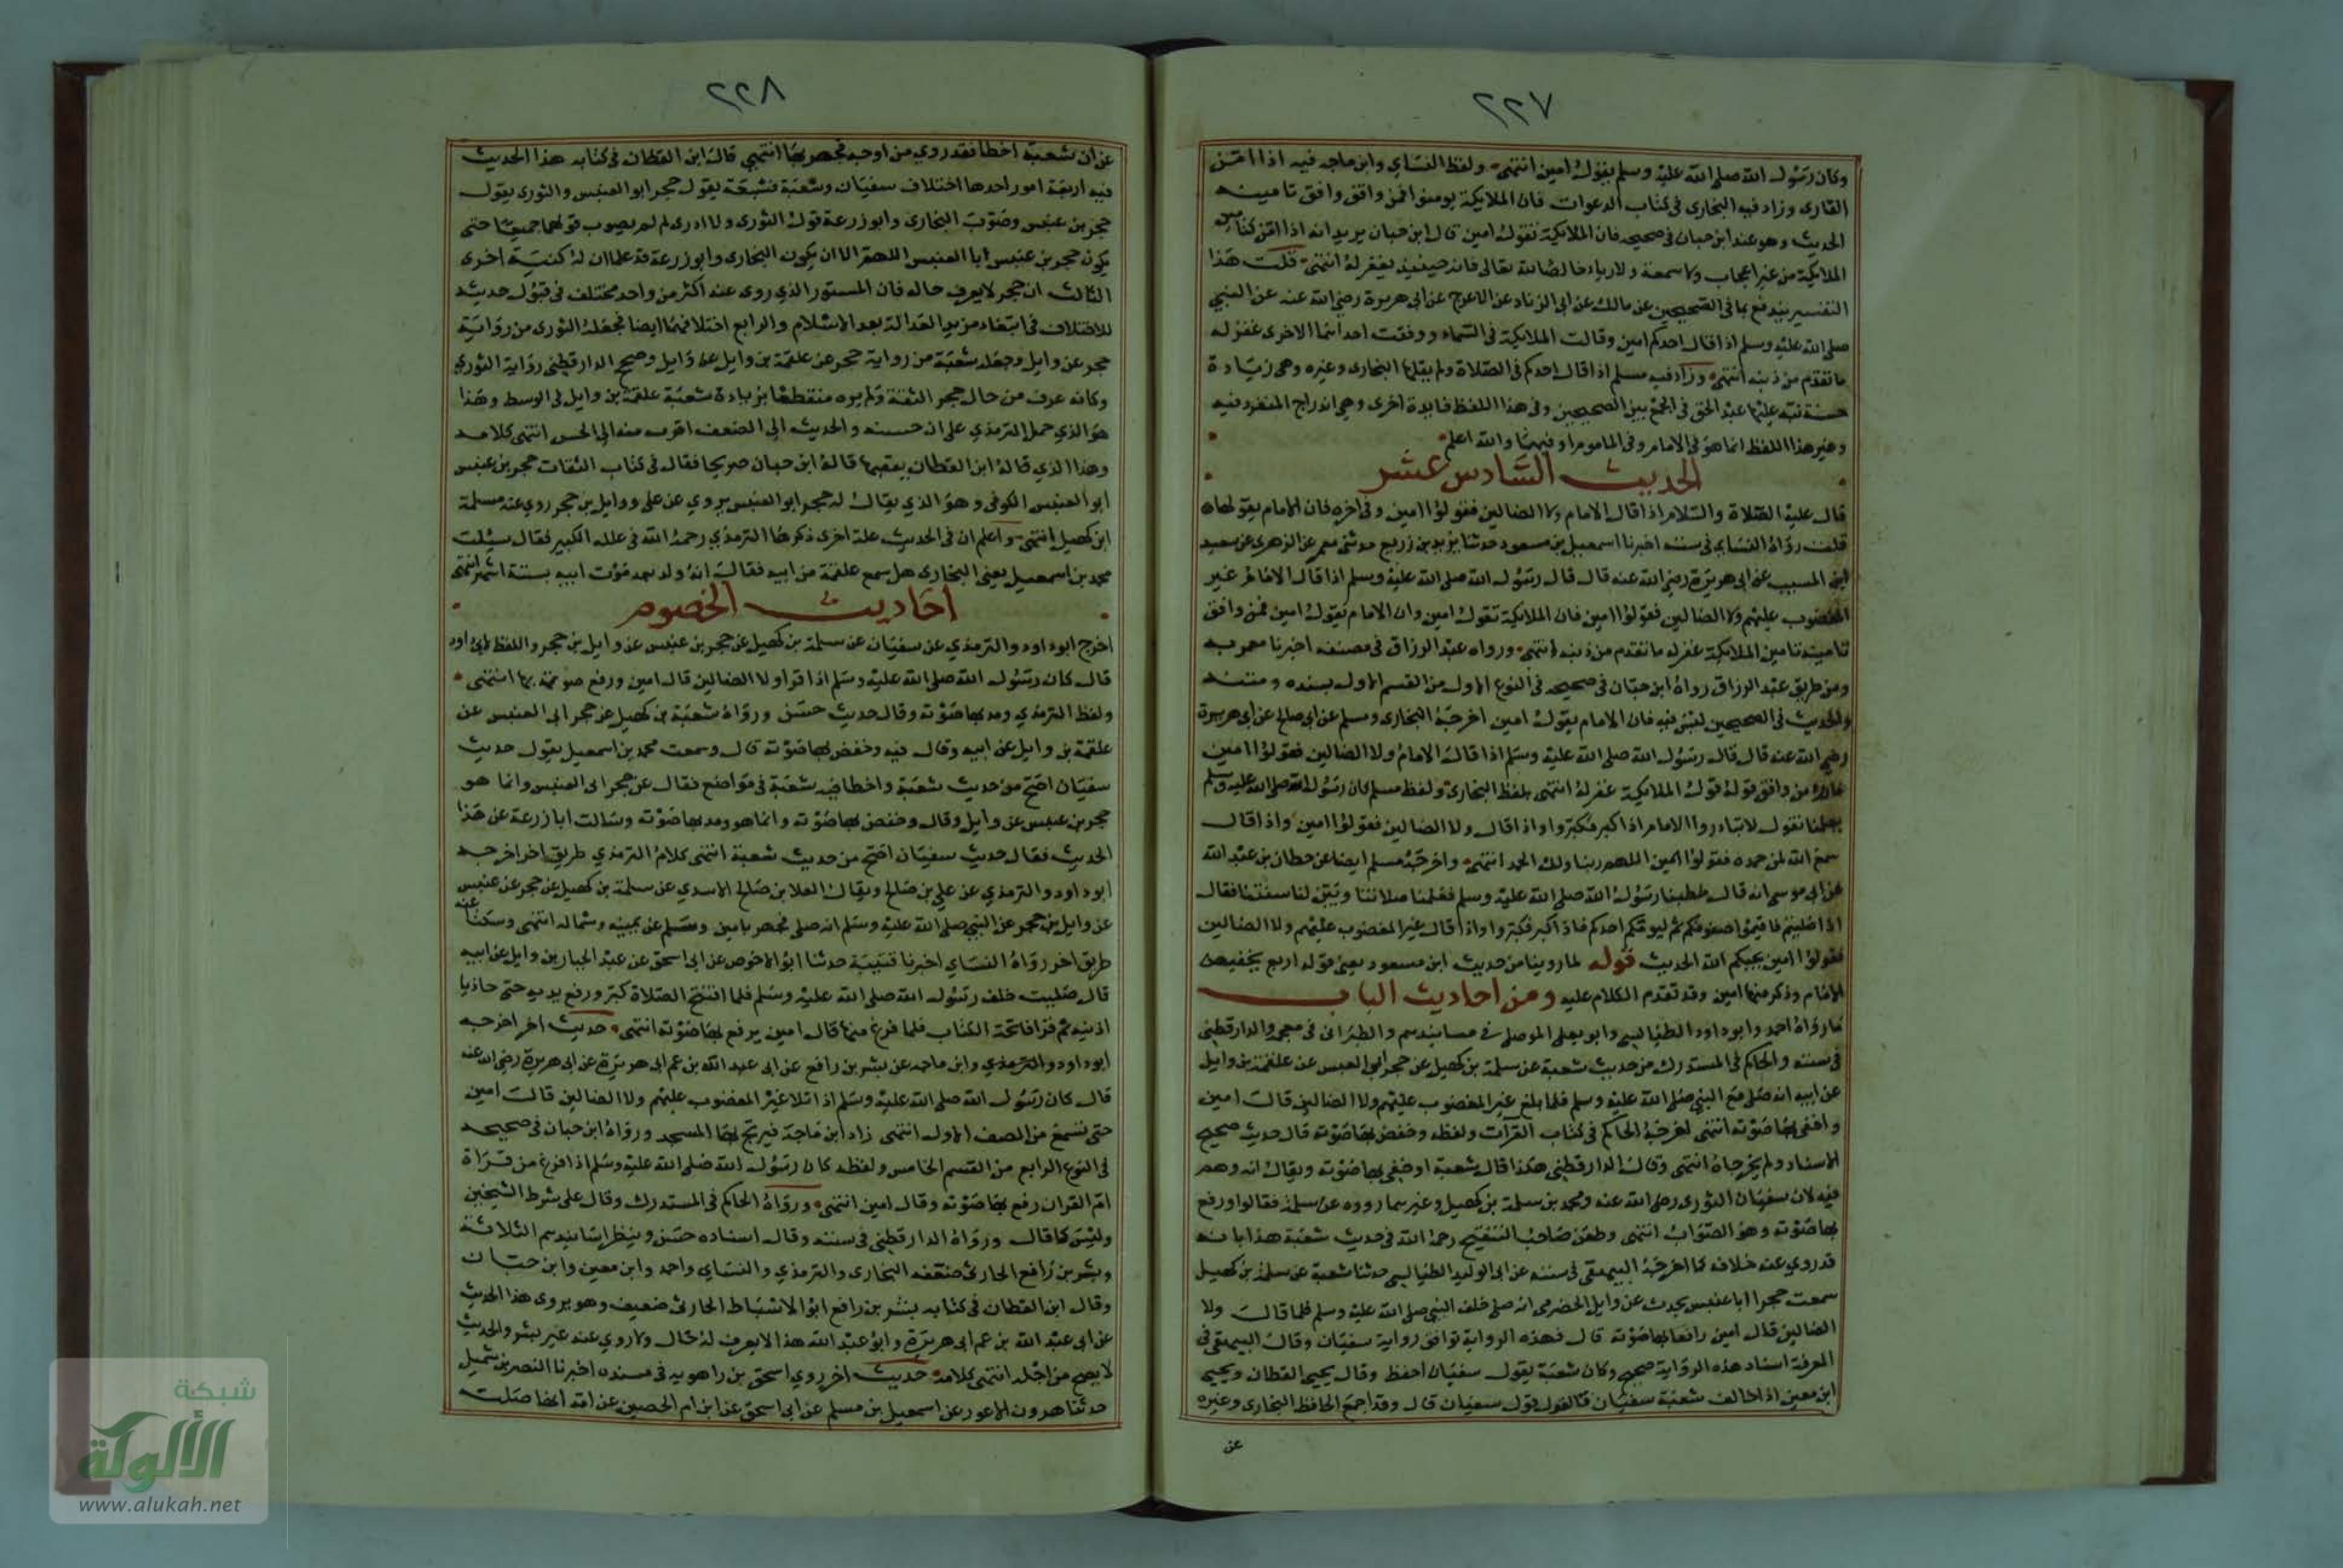 ٢٢٧
وكان رسول الله صلى الله عليه وسلم يقول امين انتهى ولفظ النساي وابن ماجه فيه اذا امن
القارى وزاد فيه البخارى فى كتاب الدعوات فان الملايكة يومنوا فمن وافق وافق تامينه
الحديث وهو عند ابن حبان فى صحيحه فان الملايكة تقول امين قال ابن حبان يريد انه اذا امن كتامين
الملايكة من غير اعجاب ولا سمعة ولا رياء خالصا لله تعالى فانه حينئذ يغفر له انتهى قلت هذا
التفسير يندفع بما فى الصحيحين عن مالك عن ابى الزناد عن الاعرج عن ابى هريرة رضى الله عنه عن النبى
صلى الله عليه وسلم اذا قال احدكم امين وقالت الملايكة فى السماء ووفقت احداهما الاخرى غفر له
ما تقدم من ذنبه انتهى وزاد فيه مسلم اذا قال احدكم فى الصلاة ولم يقلها البخارى وغيره وهى زيادة
حسنة نبه عليها عبد الحق فى الجمع بين الصحيحين وفى هذا اللفظ فايدة اخرى وهى اندراج المنفرد فيه
وغير هذا اللفظ انما هو فى الامام وفى الماموم او فيهما والله اعلم
الحديث السادس عشر
قال عليه الصلاة والسلام اذا قال الامام ولا الضالين فقولوا امين وفى اخره فان الامام يقولها
قلت رواه النساى فى سننه اخبرنا اسمعيل بن مسعود حدثنا يزيد بن زريع حدثنى معمر عن الزهرى عن سعيد
ابن المسيب عن ابى هريرة رضى الله عنه قال قال رسول الله صلى الله عليه وسلم اذا قال الامام غير
المغضوب عليهم ولا الضالين فقولوا امين فان الملايكة تقول امين وان الامام يقول امين فمن وافق
تامينه تامين الملايكة غفر له ما تقدم من ذنبه انتهى ورواه عبد الرزاق فى مصنفه اخبرنا معمر به
ومن طريق عبد الرزاق رواه ابن حبان فى صحيحه فى النوع الاول من القسم الاول بسنده ومتنه
والحديث فى الصحيحين ليس فيه فان الامام يقول امين اخرجه البخارى ومسلم عن ابى صالح عن ابى هريرة
رضى الله عنه قال قال رسول الله صلى الله عليه وسلم اذا قال الامام ولا الضالين فقولوا امين
فانه من وافق قوله قول الملايكة غفر له انتهى بلفظ البخارى ولفظ مسلم كان رسول الله صلى الله عليه وسلم
يعلمنا يقول لا تبادروا الامام اذا كبر فكبروا واذا قال ولا الضالين فقولوا امين واذا قال
سمع الله لمن حمده فقولوا اللهم ربنا ولك الحمد انتهى واخرجه مسلم ايضا عن حطان بن عبد الله
عن ابى موسى انه قال خطبنا رسول الله صلى الله عليه وسلم فعلمنا صلاتنا وبين لنا سنتنا فقال
اذا صليتم فاقيموا صفوفكم ثم ليؤمكم احدكم فاذا كبر فكبروا واذا قال غير المغضوب عليهم ولا الضالين
فقولوا امين يجبكم الله الحديث قوله لما روينا من حديث ابن مسعود يعنى قوله اربع يخفيهن
الامام وذكر منها امين وقد تقدم الكلام عليه ومن احاديث الباب
ما رواه احمد وابو داود الطيالسى وابو يعلى الموصلى فى مسانيدهم والطبرانى فى معجمه والدارقطنى
فى سننه والحاكم فى المستدرك من حديث شعبة عن سلمة بن كهيل عن حجر ابى العنبس عن علقمة بن وايل
عن ابيه انه صلى مع النبى صلى الله عليه وسلم فلما بلغ غير المغضوب عليهم ولا الضالين قال امين
واخفى بها صوته انتهى اخرجه الحاكم فى كتاب القرآت ولفظه وخفض بها صوته قال حديث صحيح
الاسناد ولم يخرجاه انتهى وقال الدارقطنى هكذا قال شعبة اخفى بها صوته ويقال انه وهم
فيه لان سفيان الثورى رضى الله عنه ومحمد بن سلمة بن كهيل وغيرهما رووه عن سلمة فقالوا ورفع
بها صوته وهو الصواب انتهى وطعن صاحب التنقيح رحمه الله فى حديث شعبة هذا بانه
قد روي عنه خلافه كما اخرجه البيهقى فى سننه عن ابى الوليد الطيالسى حدثنا شعبة عن سلمة بن كهيل
سمعت حجرا ابا عنبس يحدث عن وايل الحضرمى انه صلى خلف النبى صلى الله عليه وسلم فلما قال ولا
الضالين قال امين رافعا بها صوته قال فهذه الرواية توافق رواية سفيان وقال البيهقى فى
المعرفة اسناد هذه الرواية صحيح وكان شعبة يقول سفيان احفظ وقال يحيى القطان ويحيى
ابن معين اذا خالف شعبة سفيان فالقول قول سفيان قال وقد اجمع الحافظ البخارى وغيره
عن
٢٢٨
عن ان شعبة اخطا فقد روي من اوجه فجهر بها انتهى قال ابن القطان فى كتابه هذا الحديث
فيه اربعة امور احدها اختلاف سفيان وشعبة فشعبة يقول حجر ابو العنبس والثورى يقول
حجر بن عنبس وصوب البخارى وابو زرعة قول الثورى ولا ادرى لم لم يصوب قولهما جميعا حتى
يكون حجر بن عنبس ابا العنبس اللهم الا ان يكون البخارى وابو زرعة قد علما ان له كنية اخرى
الثالث ان حجر لا يعرف حاله فان المستور الذي روى عنه اكثر من واحد مختلف فى قبول حديثه
للاختلاف فى ابتغاء مزيد العدالة بعد الاسلام والرابع اختلافهما ايضا فجعله الثورى من رواية
حجر عن وايل وجعله شعبة من رواية حجر عن علقمة بن وايل عن وايل وصحح الدارقطنى رواية الثورى
وكانه عرف من حال حجر الثقة ولم يره منقطعا بزيادة شعبة علقمة بن وايل فى الوسط وهذا
هو الذي حمل الترمذي على ان حسنه والحديث الى الضعف اقرب منه الى الحسن انتهى كلامه
وهذا الذي قاله ابن القطان قاله ابن حبان صريحا فقال فى كتاب الثقات حجر بن عنبس
ابو العنبس الكوفى وهو الذي يقال له حجر ابو العنبس يروي عن على ووايل بن حجر روى عنه سلمة
ابن كهيل انتهى واعلم ان فى الحديث علة اخرى ذكرها الترمذي رحمه الله فى علله الكبير فقال سئلت
محمد بن اسمعيل يعنى البخارى هل سمع علقمة من ابيه فقال انه ولد بعد موت ابيه بستة اشهر انتهى
احاديث الخصوم
اخرج ابو داود والترمذي عن سفيان عن سلمة بن كهيل عن حجر بن عنبس عن وايل بن حجر واللفظ لابى داود
قال كان رسول الله صلى الله عليه وسلم اذا قرا ولا الضالين قال امين ورفع صوته بها انتهى
ولفظ الترمذي ومد بها صوته وقال حديث حسن ورواه شعبة بن كهيل عن حجر ابى العنبس عن
علقمة بن وايل عن ابيه وقال فيه وخفض بها صوته قال وسمعت محمد بن اسمعيل يقول حديث
سفيان اصح من حديث شعبة واخطا فيه شعبة فى مواضع فقال عن حجر ابى العنبس وانما هو
حجر بن عنبس عن وايل وقال وخفض بها صوته وانما هو ومد بها صوته وسالت ابا زرعة عن هذا
الحديث فقال حديث سفيان اصح من حديث شعبة انتهى كلام الترمذي طريق اخر اخرجه
ابو داود والترمذي عن علي بن صالح ويقال العلا بن صالح الاسدي عن سلمة بن كهيل عن حجر عن عنبس
عن وايل بن حجر عن النبى صلى الله عليه وسلم انه صلى فجهر بامين وسلم عن يمينه وشماله انتهى وسكتا عنه
طريق اخر رواه النساي اخبرنا قتيبة حدثنا ابو الاحوص عن ابى اسحق عن عبد الجبار بن وايل عن ابيه
قال صليت خلف رسول الله صلى الله عليه وسلم فلما افتتح الصلاة كبر ورفع يديه حتى حاذيا
اذنيه ثم قرا فاتحة الكتاب فلما فرغ منها قال امين يرفع بها صوته انتهى حديث اخر اخرجه
ابو داود والترمذي وابن ماجه عن بشر بن رافع عن ابى عبد الله بن عم ابى هريرة عن ابى هريرة رضى الله عنه
قال كان رسول الله صلى الله عليه وسلم اذا تلا غير المغضوب عليهم ولا الضالين قال امين
حتى يسمع من الصف الاول انتهى زاد ابن ماجة فيرتج بها المسجد ورواه ابن حبان فى صحيحه
فى النوع الرابع من القسم الخامس ولفظه كان رسول الله صلى الله عليه وسلم اذا فرغ من قراة
ام القران رفع بها صوته وقال امين انتهى ورواه الحاكم فى المستدرك وقال على شرط الشيخين
وليس كما قال ورواه الدارقطنى فى سننه وقال اسناده حسن وينظر اسانيدهم الثلاثة
وبشر بن رافع الحارثى ضعفه البخارى والترمذي والنساي واحمد وابن معين وابن حبان
وقال ابن القطان فى كتابه بشر بن رافع ابو الاسباط الحارثى ضعيف وهو يروى هذا الحديث
عن ابى عبد الله بن عم ابى هريرة وابو عبد الله هذا لا يعرف له حال ولا روي عنه غير بشر والحديث
لا يصح من اجله انتهى كلامه حديث اخر روي اسحق بن راهويه فى مسنده اخبرنا النضر بن شميل
حدثنا هرون الاعور عن اسمعيل بن مسلم عن ابى اسحق عن ابن ام الحصين عن امه انها صلت
شبكة
الألوكة
www.alukah.net